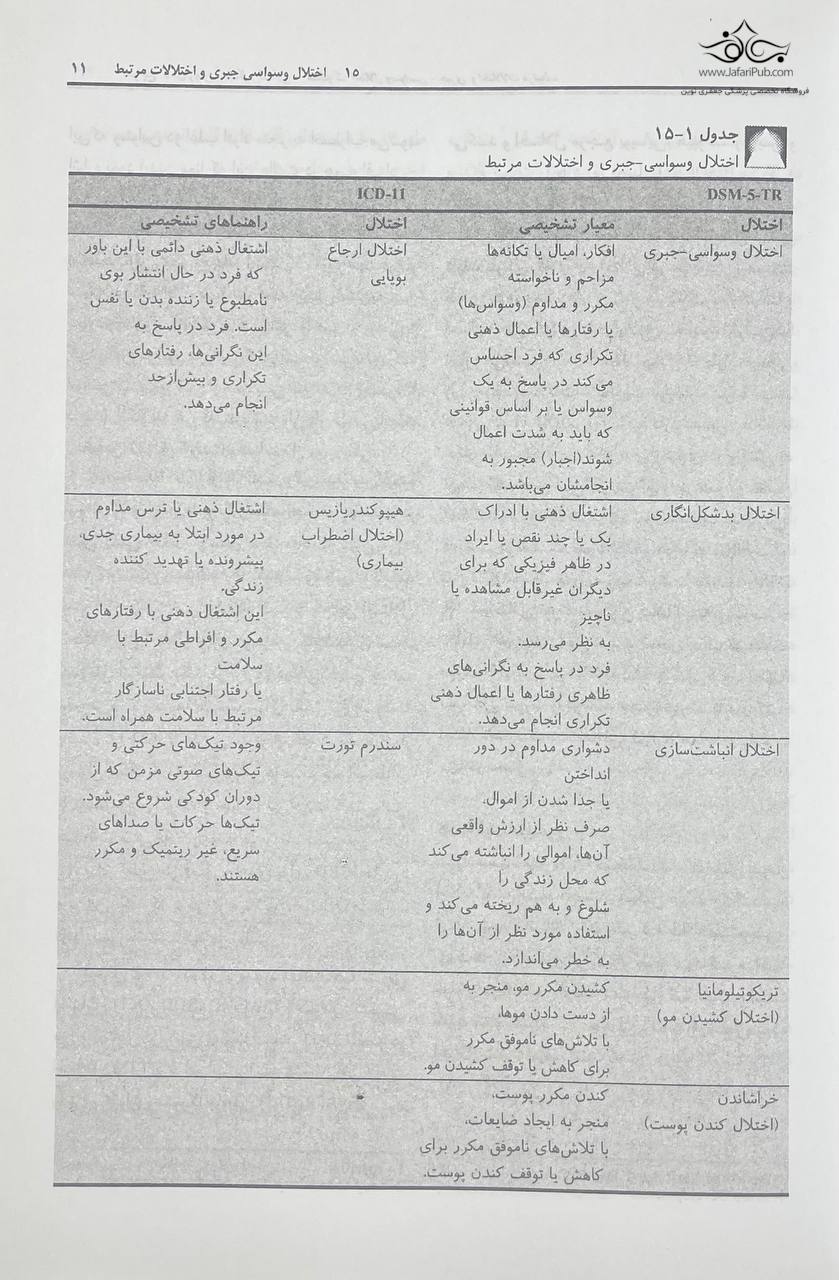 جعفری
www.JafariPub.com
فروشگاه تخصصی پزشکی جعفری نوین
۱۵ اختلال وسواسی جبری و اختلالات مرتبط ۱۱
جدول ۱-۱۵
اختلال وسواسی-جبری و اختلالات مرتبط
DSM-5-TR
ICD-11
اختلال
معیار تشخیصی
اختلال
راهنماهای تشخیصی
اختلال وسواسی-جبری
افکار، امیال یا تکانه‌ها
مزاحم و ناخواسته
مکرر و مداوم (وسواس‌ها)
یا رفتارها یا اعمال ذهنی
تکراری که فرد احساس
می‌کند در پاسخ به یک
وسواس یا بر اساس قوانینی
که باید به شدت اعمال
شوند(اجبار) مجبور به
انجامشان می‌باشد.
اختلال ارجاع
بویایی
اشتغال ذهنی دائمی با این باور
که فرد در حال انتشار بوی
نامطبوع یا زننده بدن یا تَفَس
است. فرد در پاسخ به
این نگرانی‌ها، رفتارهای
تکراری و بیش‌ازحد
انجام می‌دهد.
اختلال بدشکل‌انگاری
اشتغال ذهنی با ادراک
یک یا چند نقص یا ایراد
در ظاهر فیزیکی که برای
دیگران غیرقابل مشاهده یا
ناچیز
به نظر می‌رسد.
فرد در پاسخ به نگرانی‌های
ظاهری رفتارها یا اعمال ذهنی
تکراری انجام می‌دهد.
هیپوکندریازیس
(اختلال اضطراب
بیماری)
اشتغال ذهنی یا ترس مداوم
در مورد ابتلا به بیماری جدی،
پیشرونده یا تهدید کننده
زندگی.
این اشتغال ذهنی با رفتارهای
مکرر و افراطی مرتبط با
سلامت
یا رفتار اجتنابی ناسازگار
مرتبط با سلامت همراه است.
اختلال انباشت‌سازی
دشواری مداوم در دور
انداختن
یا جدا شدن از اموال،
صرف نظر از ارزش واقعی
آن‌ها، اموالی را انباشته می‌کند
که محل زندگی را
شلوغ و به هم ریخته می‌کند و
استفاده مورد نظر از آن‌ها را
به خطر می‌اندازد.
سندرم تورت
وجود تیک‌های حرکتی و
تیک‌های صوتی مزمن که از
دوران کودکی شروع می‌شود.
تیک‌ها حرکات یا صداهای
سریع، غیر ریتمیک و مکرر
هستند.
تریکوتیلومانیا
(اختلال کشیدن مو)
کشیدن مکرر مو، منجر به
از دست دادن موها،
با تلاش‌های ناموفق مکرر
برای کاهش یا توقف کشیدن مو.
خراشاندن
(اختلال کندن پوست)
کندن مکرر پوست،
منجر به ایجاد ضایعات،
با تلاش‌های ناموفق مکرر برای
کاهش یا توقف کندن پوست.